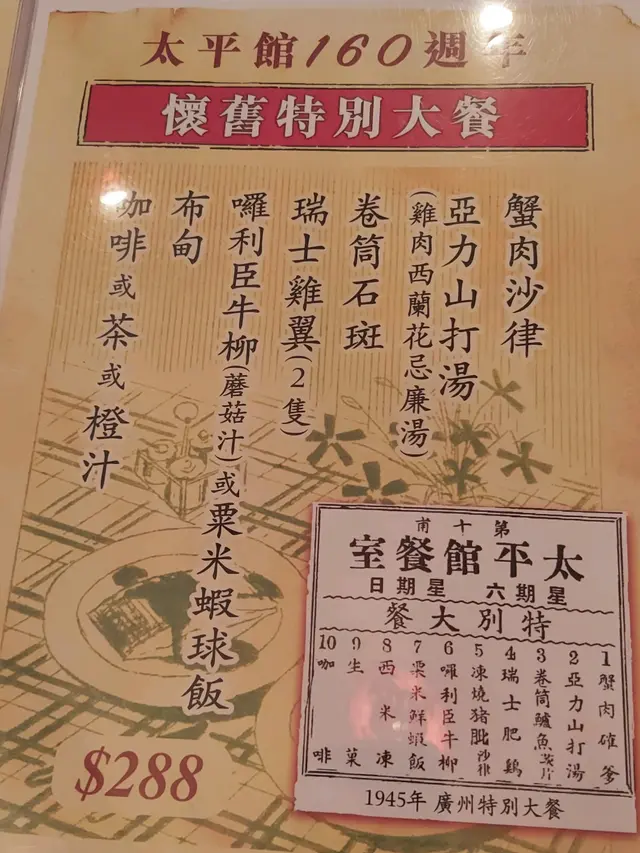 太平館160週年
懷舊特別大餐
蟹肉沙律
亞力山打湯
(雞肉西蘭花忌廉湯)
卷筒石斑
瑞士雞翼(2隻)
囉利臣牛柳(蘑菇汁)或粟米蝦球飯
布甸
咖啡或茶或橙汁
$288
第十甫
太平館餐室
星期六 星期日
特別大餐
1蟹肉碓爹
2亞力山打湯
3卷筒鱸魚
4瑞士肥鷄
5凍燒豬髀沙律
6囉利臣牛柳
7粟米鮮蝦飯
8西米凍
9生菓
10咖啡
1945年 廣州特別大餐